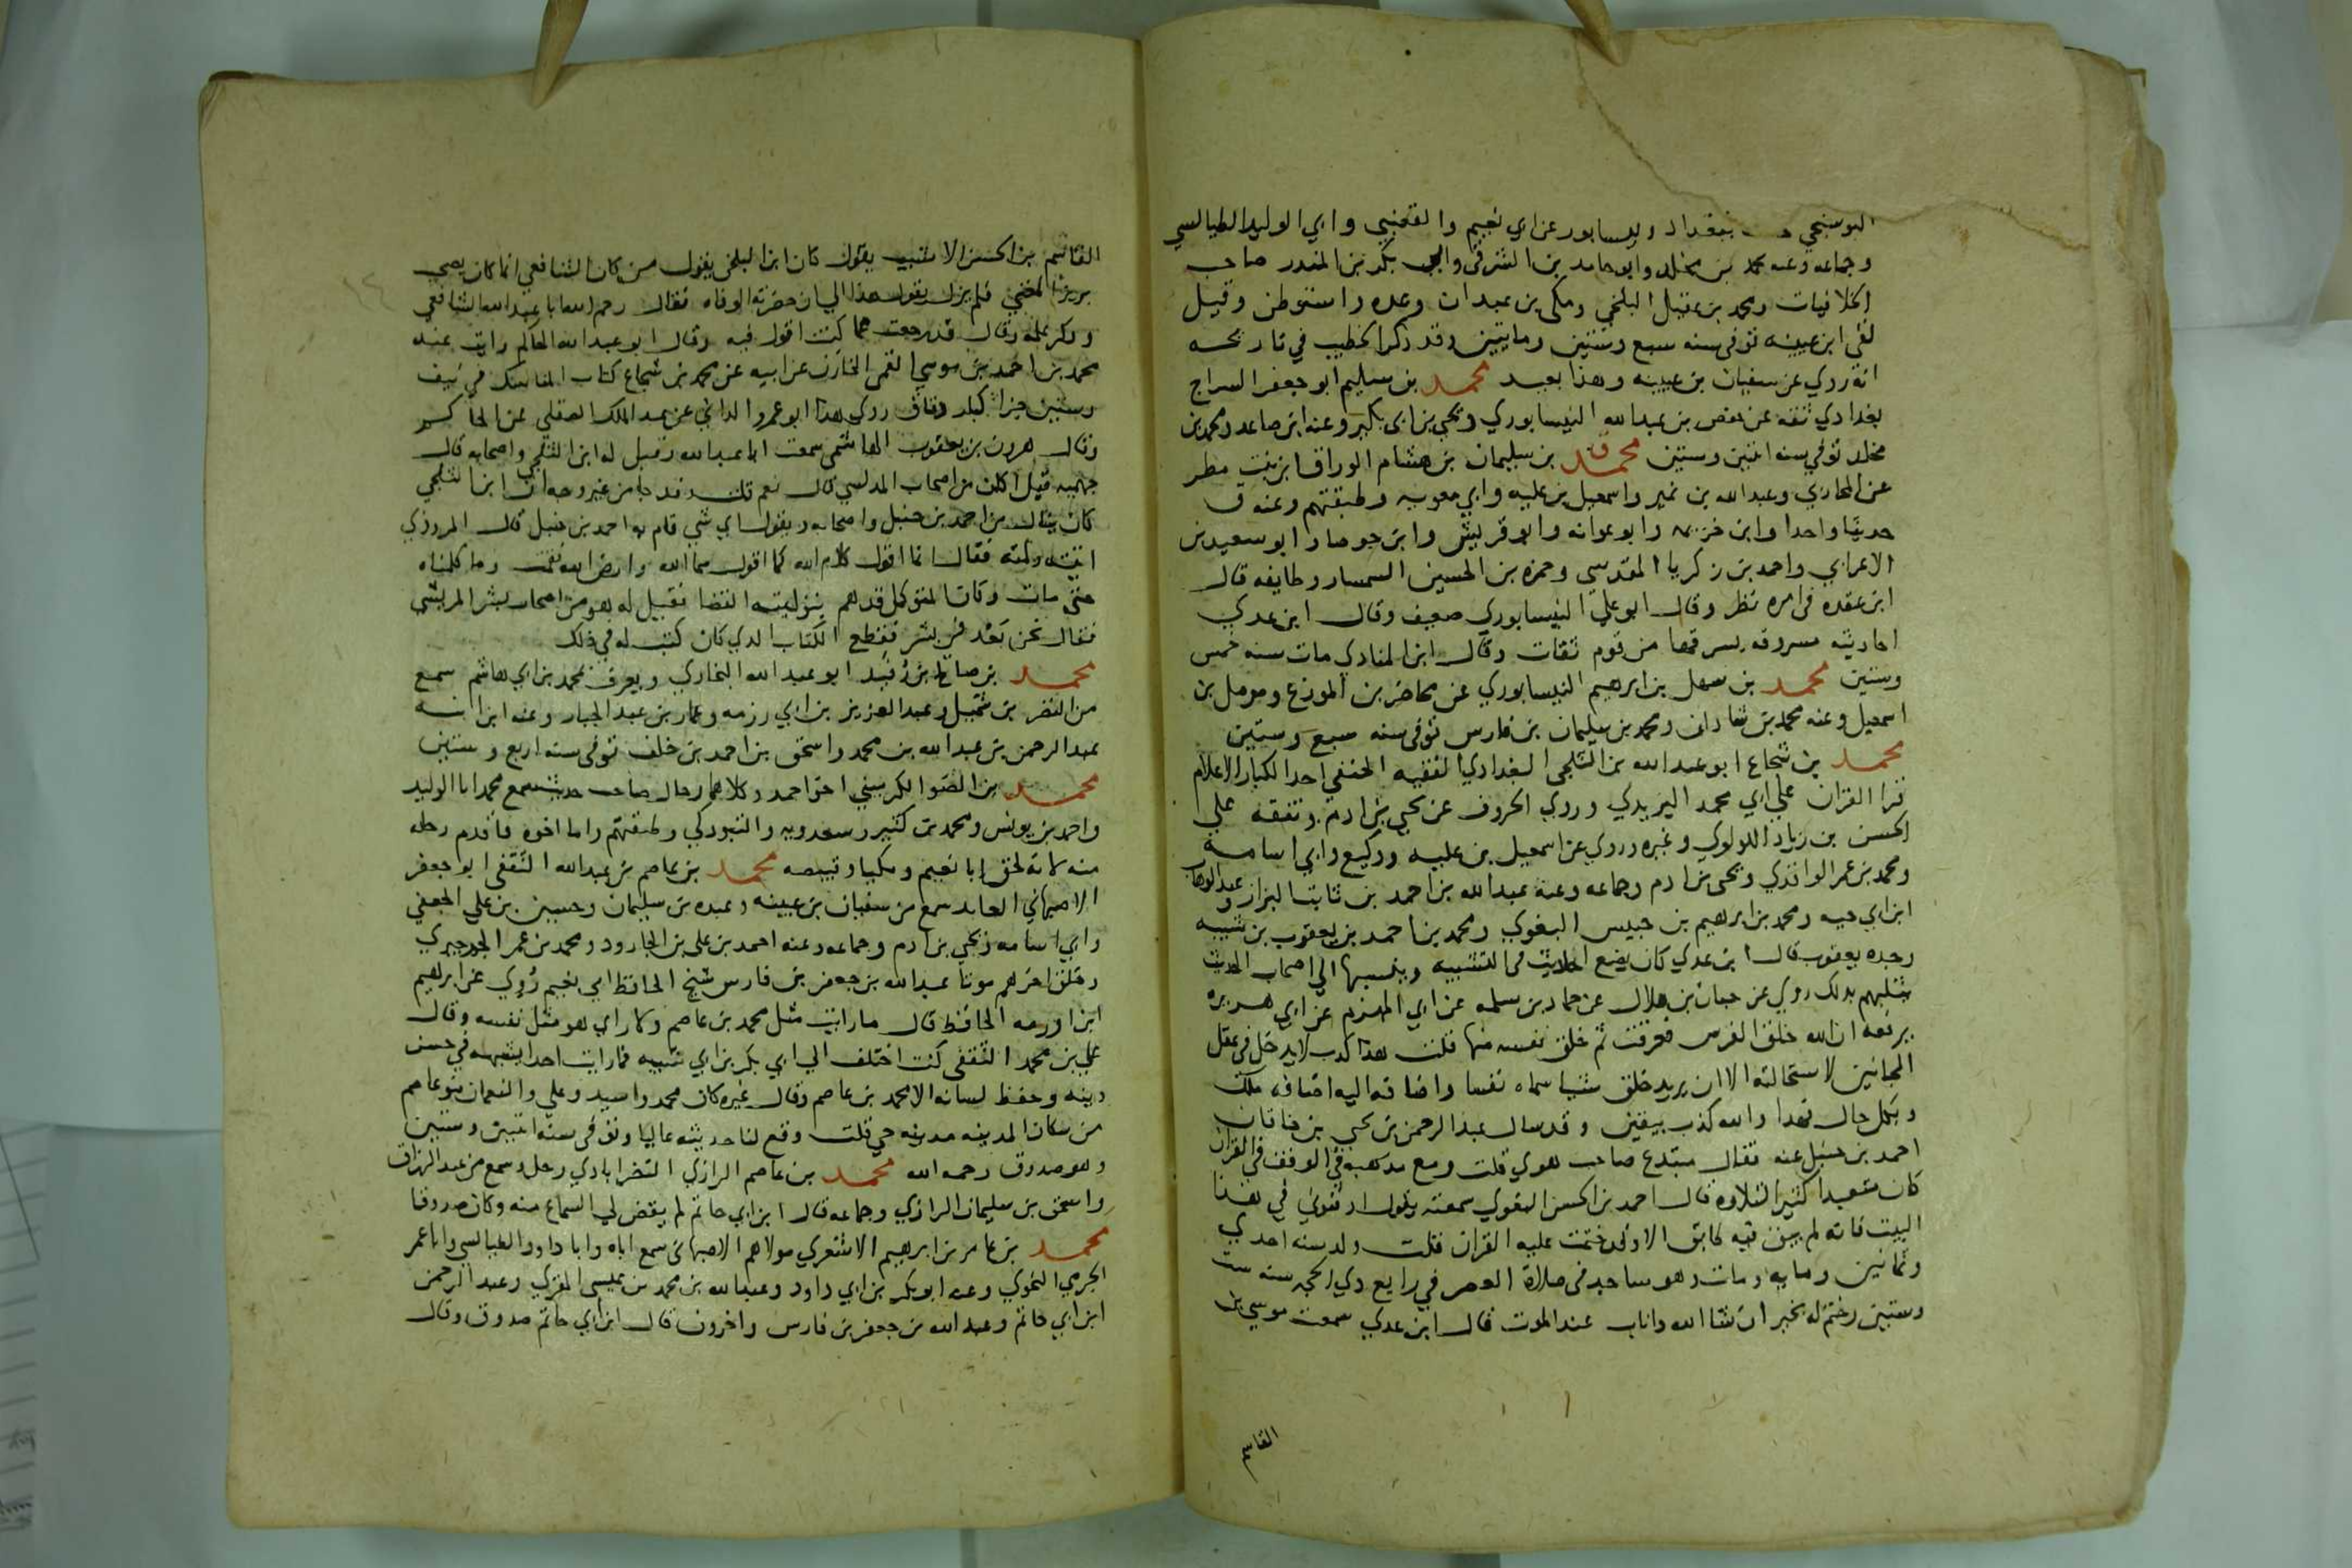 البوسنجي ببغداد ونيسابور عن ابي نعيم والقعنبي وابي الوليد الطيالسي
وجماعه وعنه محمد بن مخلد وابو حامد بن الشرقي وابو بكر بن المنذر صاحب
الخلافيات ومحمد بن عقيل البلخي ومكي بن عبدان وعده واستوطن وقيل
لقي ابن عيينه توفي سنه سبع وستين ومايتين وقد ذكر الخطيب في تاريخه
انه روي عن سفيان بن عيينه وهذا بعيد محمد بن سليم ابو جعفر السراج
بغدادي ثقه عن حفص بن عبد الله النيسابوري ويحيى بن ابي بكير وعنه ابن صاعد ومحمد بن
مخلد توفي سنه اثنين وستين محمد بن سليمان بن هشام الوراق ابن بنت مطر
عن المحاربي وعبد الله بن نمير واسمعيل بن عليه وابي معويه وطبقتهم وعنه ق
حديثا واحدا وابن خزيمه وابو عوانه وابو قريش وابن جوصا وابو سعيد بن
الاعرابي واحمد بن زكريا المقدسي وحمزه بن الحسين السمسار وطايفه قال
ابن عقده في امره نظر وقال ابو علي النيسابوري ضعيف وقال ابن عدي
احاديثه مسروقه يسرقها من قوم ثقات وقال ابن المنادي مات سنه خمس
وستين محمد بن سهل بن ابرهيم النيسابوري عن محاضر بن المورع ومومل بن
اسمعيل وعنه محمد بن شاذان ومحمد بن سليمان بن فارس توفي سنه سبع وستين
محمد بن شجاع ابو عبد الله بن الثلجي البغدادي الفقيه الحنفي احد الكبار الاعلام
قرا القران علي ابي محمد اليزيدي وروي الحروف عن يحيى بن ادم وتفقه علي
الحسن بن زياد اللولوي وغيره وروي عن اسمعيل بن عليه ووكيع وابي اسامه
ومحمد بن عمر الواقدي ويحيى بن ادم وجماعه وعنه عبد الله بن احمد بن ثابت البزاز وعبد الوهاب
ابن ابي حيه ومحمد بن ابرهيم بن حبيس البغوي ومحمد بن احمد بن يعقوب بن شيبه
وجده يعقوب قال ابن عدي كان يضع احاديث في التشبيه وينسبها الي اصحاب الحديث
يثلبهم بذلك روي عن حبان بن هلال عن حماد بن سلمه عن ابي المهزم عن ابي هريره
يرفعه ان الله خلق الفرس فعرقت ثم خلق نفسه منها قلت هذا كذب لا يدخل في عقل
المجانين لاستحالته الا ان يريد خلق شيا سماه نفسا واضافه اليه اضافه ملك
وبكل حال فهذا والله كذب بيقين وقد سال عبد الرحمن بن يحيى بن خاقان
احمد بن حنبل عنه فقال مبتدع صاحب هوي قلت ومع مذهبه في الوقف في القران
كان متعبدا كثير التلاوه قال احمد بن الحسن البغوي سمعته يقول ادفنوني في هذا
البيت فانه لم يبق فيه طابق الا وقد ختمت عليه القران قلت ولد سنه احدي
وثمانين ومايه ومات وهو ساجد في صلاة العصر في رابع ذي الحجه سنه ست
وستين وختم له بخير ان شا الله واناب عند الموت قال ابن عدي سمعت موسي بن
القاسم
القاسم بن الحسن الاشيب يقول كان ابن البلخي يقول من كان الشافعي انما كان يصحب
بربر المغني فلم يزل يقول هذا الي ان حضرته الوفاه فقال رحم الله ابا عبد الله الشافعي
وذكر علمه وقال قد رجعت عما كنت اقول فيه وقال ابو عبد الله الحاكم رايت عند
محمد بن احمد بن موسي القمي الخازن عن ابيه عن محمد بن شجاع كتاب المناسك في نيف
وستين جزا كبار دقاق روي هذا ابو عمرو الداني عن عبد الملك الصقلي عن الحاكم
وقال هرون بن يعقوب الهاشمي سمعت ابا عبد الله وقيل له ابن الثلجي واصحابه قال
جهميه قيل اكان من اصحاب المريسي قال نعم قلت وقد جا من غير وجه ان ابن الثلجي
كان ينال من احمد بن حنبل واصحابه ويقول اي شي قام به احمد بن حنبل قال المروزي
اتيته ولمته فقال انما اقول كلام الله كما اقول سما الله وارض الله فقمت وما كلمناه
حتي مات وكان المتوكل قد هم بتوليته القضا فقيل له هو من اصحاب بشر المريسي
فقال نحن بعد في بشر فقطع الكتاب الذي كان كتب له في ذلك
محمد بن صالح بن رفيد ابو عبد الله البخاري ويعرف بمحمد بن ابي هاشم سمع
من النضر بن شميل وعبد العزيز بن ابي رزمه وعمار بن عبد الجبار وعنه ابن ابنه
عبد الرحمن بن عبد الله بن محمد واسحق بن احمد بن خلف توفي سنه اربع وستين
محمد بن الضو الكرميني اخو احمد وكلاهما رحال صاحب حديث سمع محمد ابا الوليد
واحمد بن يونس ومحمد بن كثير وسعدويه والتبوذكي وطبقتهم واما اخوه فاقدم رحله
منه لانه لحق ابا نعيم ومكيا وقبيصه محمد بن عاصم بن عبد الله الثقفي ابو جعفر
الاصبهاني العابد سمع من سفيان بن عيينه وعبده بن سليمان وحسين بن علي الجعفي
وابي اسامه ويحيى بن ادم وجماعه وعنه احمد بن علي بن الجارود ومحمد بن عمر الجورجيري
وخلق اخرهم موتا عبد الله بن جعفر بن فارس شيخ الحافظ ابي نعيم روي عن ابرهيم
ابن اورمه الحافظ قال ما رايت مثل محمد بن عاصم ولا راي هو مثل نفسه وقال
علي بن محمد الثقفي كنت اختلف الي ابي بكر بن ابي شيبه فما رايت احدا يشبهه في حسن
دينه وحفظ لسانه الا محمد بن عاصم وقال غيره كان محمد واسيد وعلي والنعمان بنو عاصم
من سكان المدينه مدينه جي قلت وقع لنا حديثه عاليا وتوفي سنه اثنين وستين
وهو صدوق رحمه الله محمد بن عاصم الرازي النصراباذي رحل وسمع من عبد الرزاق
واسحق بن سليمان الرازي وجماعه قال ابن ابي حاتم لم يقض لي السماع منه وكان صدوقا
محمد بن عامر بن ابرهيم الاشعري مولاهم الاصبهاني سمع اباه وابا داود الطيالسي وابا عمر
الجرمي النحوي وعنه ابو بكر بن ابي داود وعبد الله بن محمد بن عيسي المقري وعبد الرحمن
ابن ابي حاتم وعبد الله بن جعفر بن فارس واخرون قال ابن ابي حاتم صدوق وقال